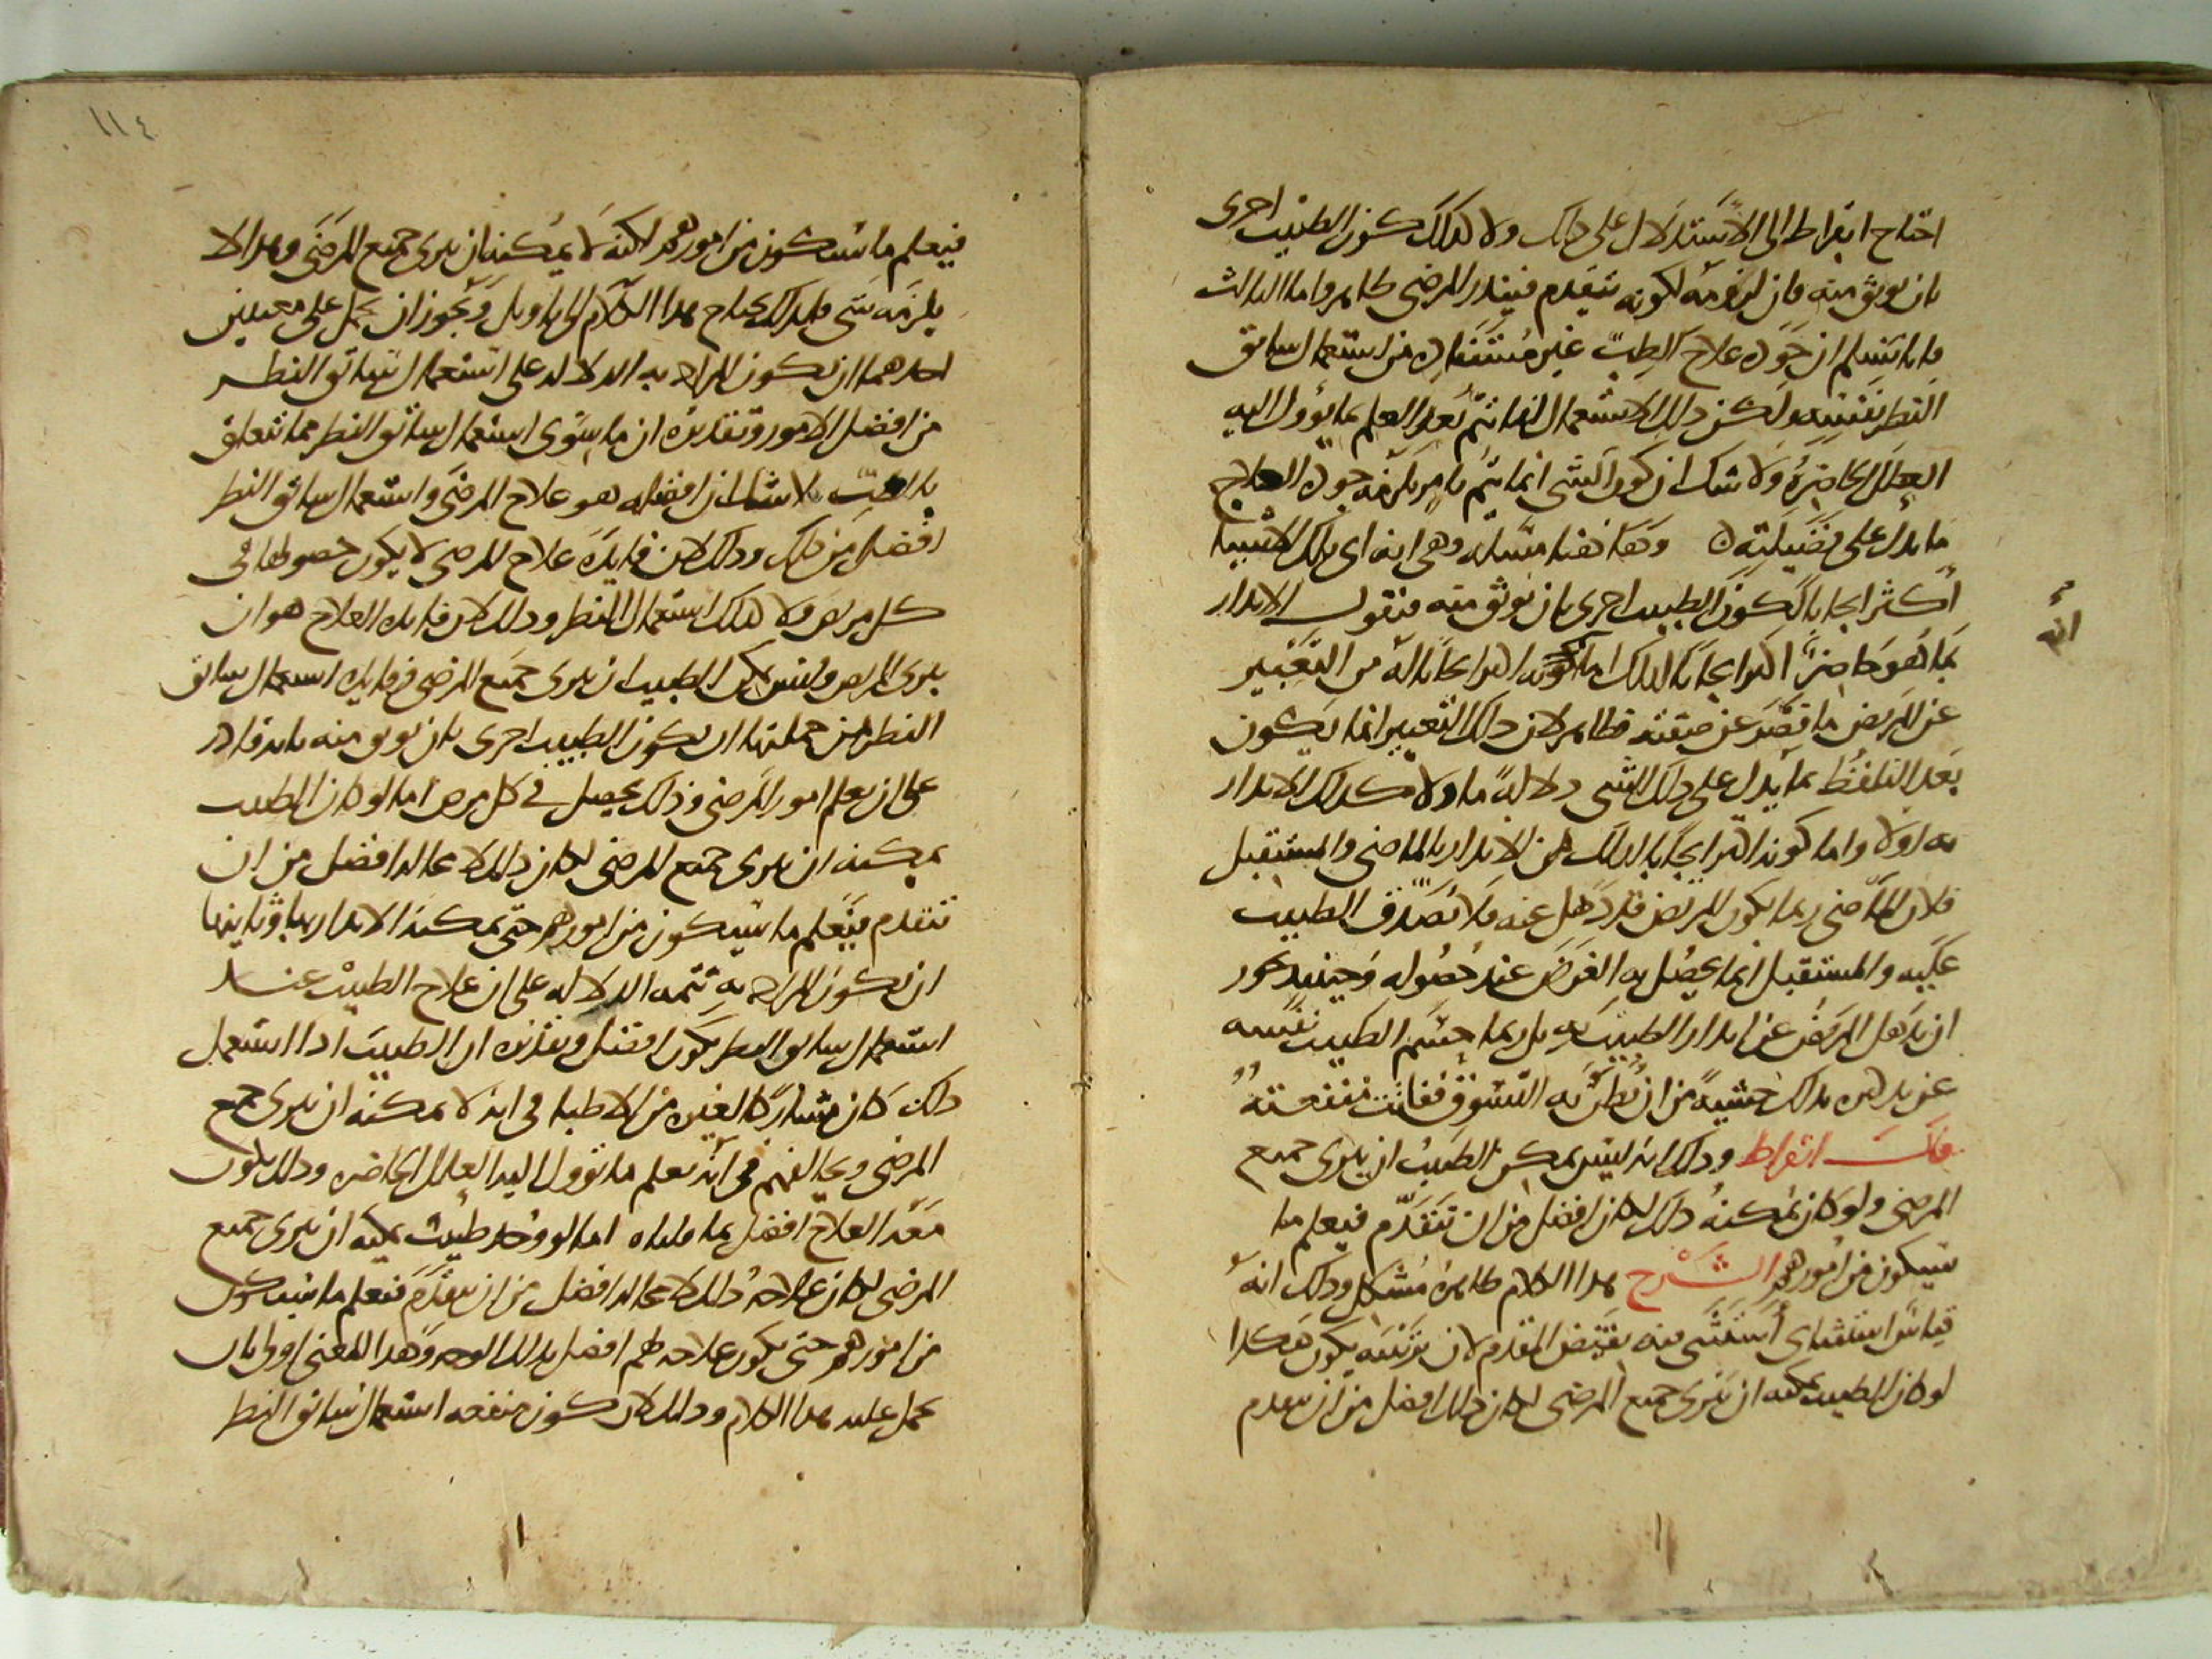 احتاج ابقراط الى الاستدلال على ذلك ولا كذلك كون الطبيب احرى
بان يوثق منه فان لزومه لكونه يتقدم فينذر المرضى ظاهر واما الثالث
فانا نسلم ان جودة علاج الطب غير مستفادة من استعمال سابق
النظر نفسه ولكن ذلك الاستعمال انما يتم بعد العلم بما يؤول اليه
العلل الحاضرة ولا شك ان كون الشى انما يتم بامر يلزمه جودة العلاج
ما يدل على فضيلته وهاهنا مسئلة وهى انه اى تلك الاشيا
اكثر ايجابا لكون الطبيب احرى بان يوثق منه فنقول الانذار
بما هو حاضر اكثر ايجابا لذلك اما كونه اكثر ايجابا له من التعبير
عن المريض ما قصر عن صفته فظاهر لان ذلك التعبير انما يكون
بعد التلفظ بما يدل على ذلك الشى دلالة ما ولا كذلك الانذار
به اولا واما كونه اكثر ايجابا لذلك من الانذار بالماضى والمستقبل
فلان الماضى ربما يكون المريض قد ذهل عنه فلا يصدق الطبيب
عليه والمستقبل انما يحصل به الغرض عند حصوله وحينيذ يجوز
ان يذهل المريض عن انذار الطبيب به بل ربما الطبيب نفسه
عن بذلك خشية من ان يظن به التسوق ففاتت منفعته
قال ابقراط وذلك انه ليس يمكن الطبيب ان يبرى جميع
المرضى ولو كان يمكنه ذلك لكان افضل من ان يتقدم فيعلم ما
سيكون من امورهم الشرح هذا الكلام ظاهره مشكل وذلك انه
قياس استثناى استثنى فيه نقيض المقدم لان ترتيبه يكون هكذا
لو كان الطبيب يمكنه ان يبرى جميع المرضى لكان ذلك افضل من ان يتقدم
انه
١١٤
فيعلم ما سيكون من امورهم لكنه لا يمكنه ان يبرى جميع المرضى وهذا لا
يلزمه شى فلذلك يحتاج هذا الكلام الى تاويل ويجوز ان يحمل على معنيين
احدهما ان يكون المراد به الدلالة على استعمال سابق النظر
من افضل الامور وتقديره ان ما سوى استعمال سابق النظر مما يتعلق
بالطب لا شك ان افضله هو علاج المرضى واستعمال سابق النظر
افضل من ذلك وذلك لان فايدة علاج المرضى لا يكون حصولها فى
كل مريض ولا كذلك استعمال النظر وذلك لان فايدة العلاج هو ان
يبرى المريض وليس يمكن الطبيب ان يبرى جميع المرضى وفايدة استعمال سابق
النظر من جملتها ان يكون الطبيب احرى بان يوثق منه بانه قادر
على ان يعلم امور المرضى وذلك يحصل فى كل مرض اما لو كان الطبيب
يمكنه ان يبرى جميع المرضى لكان ذلك لا محالة افضل من ان
يتقدم فيعلم ما سيكون من امورهم حتى يمكنه الانذار بها وثانيهما
ان يكون المراد به تتمه الدلالة على ان علاج الطبيب عند
استعمال سابق النظر يكون افضل وتقديره ان الطبيب اذا استعمل
ذلك كان مشاركا لغيره من الاطبا فى انه لا يمكنه ان يبرى جميع
المرضى ويخالفهم فى انه يعلم ما تؤول اليه العلل الحاضرة وذلك يكون
معه العلاج افضل بما قلناه اما لو وجد طبيب يمكنه ان يبرى جميع
المرضى لكان علاجه ذلك لا محالة افضل من ان يتقدم فيعلم ما سيكون
من امورهم حتى يكون علاجه لهم افضل بذلك الوجه وهذا المعنى اولى بان
يحمل عليه هذا الكلام وذلك لان كون منفعه استعمال سابق النظر